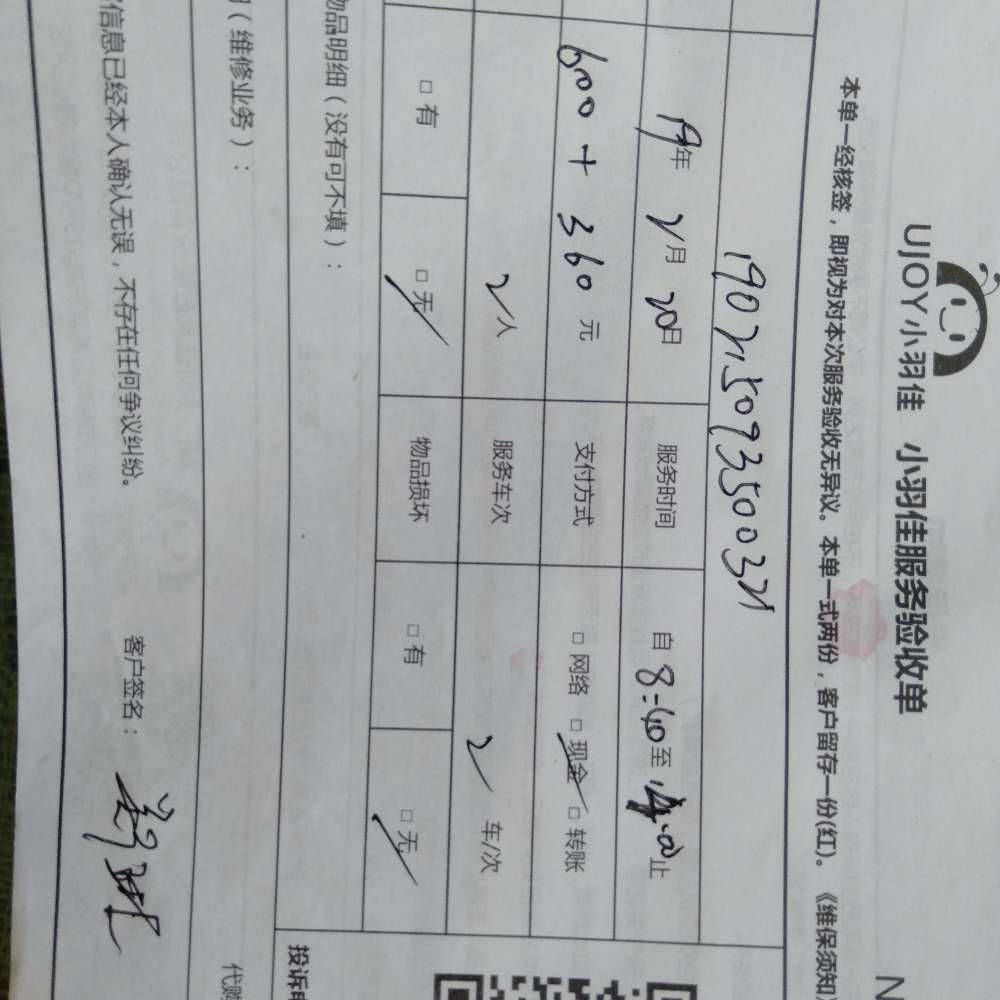 UJOY小羽佳 小羽佳服务验收单
N
本单一经核签，即视为对本次服务验收无异议。本单一式两份，客户留存一份(红)。《维保须知》
19021509350032
19年 2月 20日 服务时间 自 8:40至 14:00止
600 + 360 元 支付方式 □ 网络 □ 现金 □ 转账
2人 服务车次 2 车/次
□ 有 □ 无 物品损坏 □ 有 □ 无
物品明细（没有可不填）：
投诉
（维修业务）：
代购
信息已经本人确认无误，不存在任何争议纠纷。 客户签名：